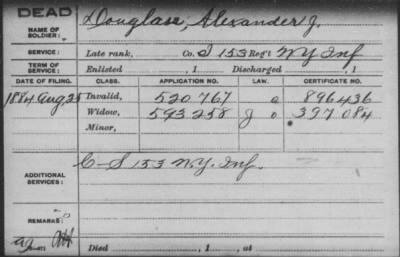 DEAD
NAME OF SOLDIER: Douglass, Alexander J.
SERVICE: Late rank, Co. I 153 Reg't N.Y. Inf
TERM OF SERVICE: Enlisted , 1 Discharged , 1
DATE OF FILING. CLASS. APPLICATION NO. LAW. CERTIFICATE NO.
1884 Aug. 25 Invalid, 520 767 a 896436
Widow, 593 258 g o 397 084
Minor,
ADDITIONAL SERVICES: C-S 153 N.Y. Inf.
REMARKS:
Died , 1 , at